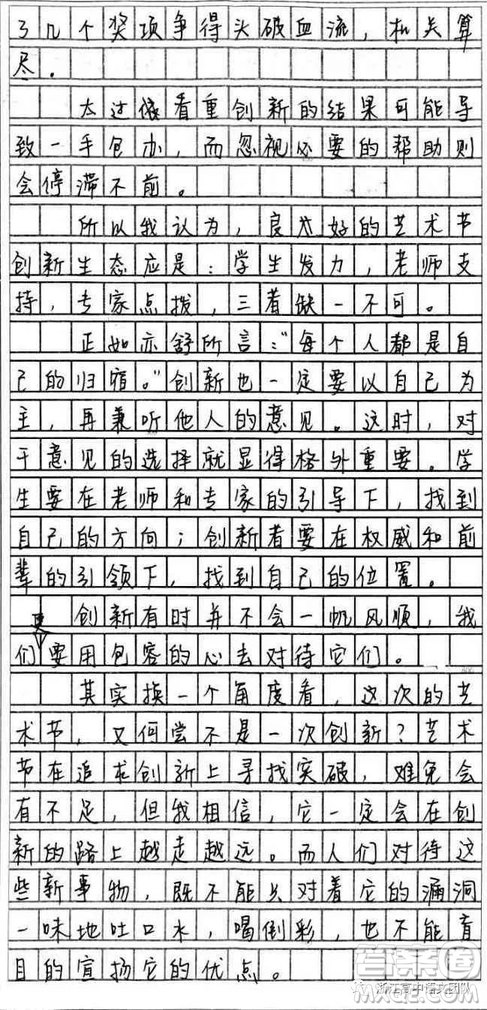 了几个奖项争得头破血流，机关算
尽。
太过依看重创新的结果可能导
致一手包办，而忽视必要的帮助则
会停滞不前。
所以我认为，良太好的艺术节
创新生态应是：学生发力，老师支
持，专家点拨，三者缺一不可。
正如亦舒所言：“每个人都是自
己的归宿。”创新也一定要以自己为
主，再兼听他人的意见。这时，对
于意见的选择就显得格外重要。学
生要在老师和专家的引导下，找到
自己的方向；创新者要在权威和前
辈的引领下，找到自己的位置。
创新有时并不会一帆风顺，我
们更要用包容的心去对待它们。
其实换一个角度看，这次的艺
术节，又何尝不是一次创新？艺术
节在追求创新上寻找突破，难免会
有不足，但我相信，它一定会在创
新的路上越走越远。而人们对待这
些新事物，既不能只对着它的漏洞
一味地吐口水，喝倒彩，也不能盲
目的宣扬它的优点。
答案圈
浙江高中语文团队